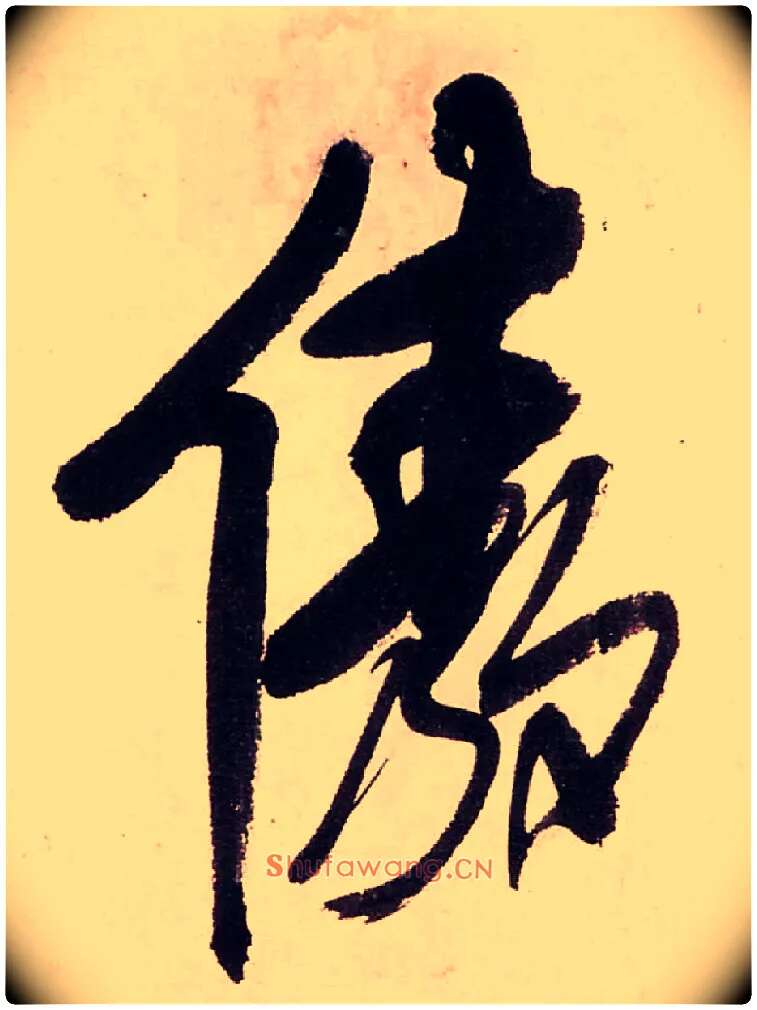 傲
Shufawang.CN